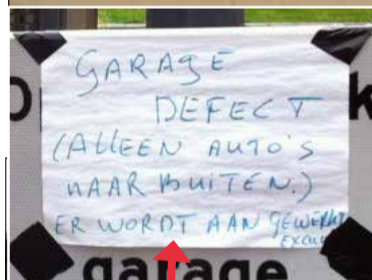 GARAGE
DEFECT
(ALLEEN AUTO'S
NAAR BUITEN.)
ER WORDT AAN GEWERKT
garage